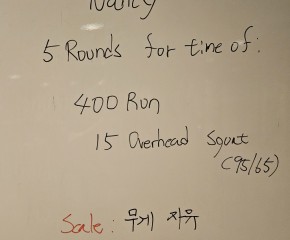 Nancy
5 Rounds for time of:
400 Run
15 Overhead Squat
(95/65)
Scale: 무게 자유